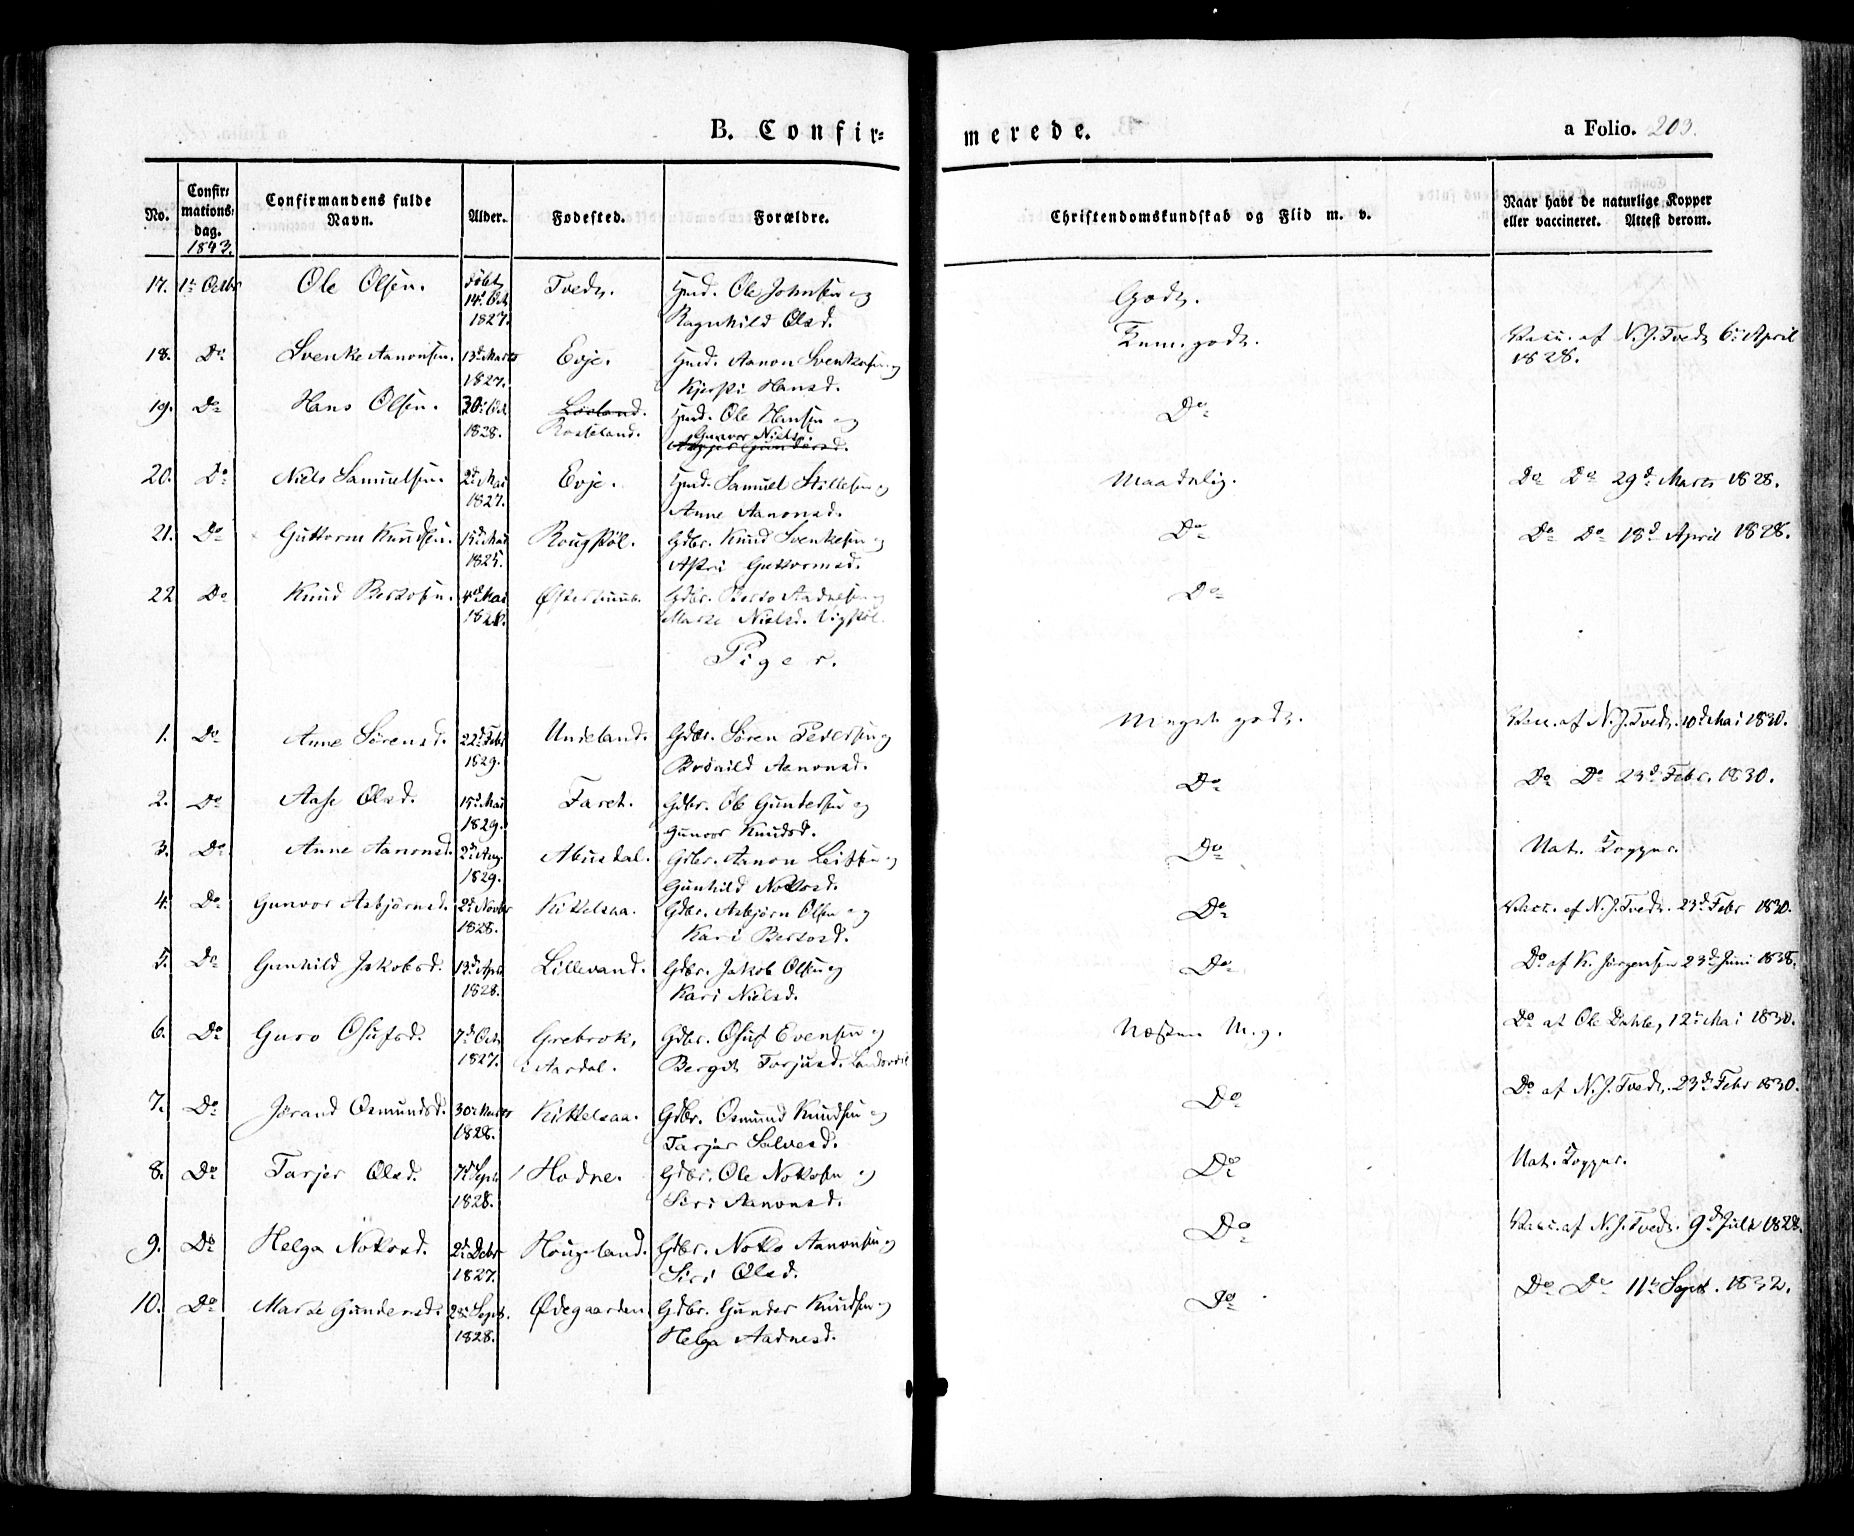 B. Confir= merede. a Folio. 203.
No. Confir= mations= dag. 1843. Confirmandens fulde Navn. Alder. Fødested. Forældre. Christendomskundskab og Flid m. v. Naar havt de naturlige Kopper eller vaccineret. Attest derom.
17. 1ste Octbr Ole Olsen. døbt 14d Oct. 1827. Tvedt. Hmd. Ole Johnsen og Ragnhild Olsd. Godt.
18. Do Svenke Aanonsen. 13d Marts 1827. Evje. Hmd. Aanon Svenkesen og Kjersti Hansd. Temgodt. Vacc. af N. J. Tvedt 6te April 1828.
19. Do Hans Olsen. 30te Oct. 1828. Rosseland. Hmd. Ole Hansen og Gunvor Nielsd. Do
20. Do Niels Samuelsen. 2d Mai 1827. Evje. Hmd. Samuel Stillesen og Anne Aanonsd. Maadelig. Do Do 29d Marts 1828.
21. Do Guttorm Knudsen. 15d Mai 1825. Rougstøl. Gdbr. Knud Svenkesen og Astri Guttormsd. Do Do Do 18d April 1828.
22 Do Knud Berdosen. 4d Mai 1828. Østerhuus. Gdbr. Berdo Aadnesen og Marte Nielsd. Vigstøl. Do
Piger.
1. Do Anne Sørensd. 22d Febr 1829. Undeland. Gdbr. Søren Pedersen og Brønild Aanonsd. Meget godt. Vacc. af N. J. Tvedt. 10d Mai 1830.
2. Do Aase Olsd. 15d Mai 1829. Faret. Gdbr. Ole Gundersen og Gunvor Knudsd. Do Do Do 23d Febr. 1830.
3. Do Anne Aanonsd. 2d Aug. 1829. Abusdal. Gdbr. Aanon Leifsen og Gunhild Notosd. Do Nat. Kopper.
4. Do Gunvor Asbjørnsd. 2d Novbr 1828. Kittelsaa. Gdbr. Asbjørn Olsen og Kari Berdosd. Do Vacc. af N. J. Tvedt. 23d Febr 1830.
5. Do Gunhild Jakobsd. 13d Apr. 1828. Lillevand. Gdbr. Jakob Olsen og Kari Nielsd. Do Do af K. Jørgensen 23d Juni 1838.
6. Do Guro Osufsd. 7d Oct. 1827. Grebrok, i Aardal. Gdbr. Osuf Evensen og Bergit Torjusd. Næsten M. g. Do af Ole Dahle, 12te Mai 1830.
7. Do Jørand Osmundsd. 30te Marts 1828. Kittelsaa. Gdbr. Osmund Knudsen og Tarjer Salvesd. Do Do af N. J. Tvedt. 23d Febr 1830.
8. Do Tarjer Olsd. 7d Sept. 1828. Hodne. Gdbr. Ole Notosen og Siri Aanonsd. Do Nat. Kopper.
9. Do Helga Notosd. 2d Decbr 1827. Hougeland. Gdbr. Noto Aanonsen og Siri Olsd. Do Vacc. af N. J. Tvedt. 9d Juli 1828.
10. Do Marte Gundersd. Sept. 1828. Ødegaarden Gdbr. Gunder Knudsen og Helga Aadnesd. Do Do Do 11te Sept. 1832.